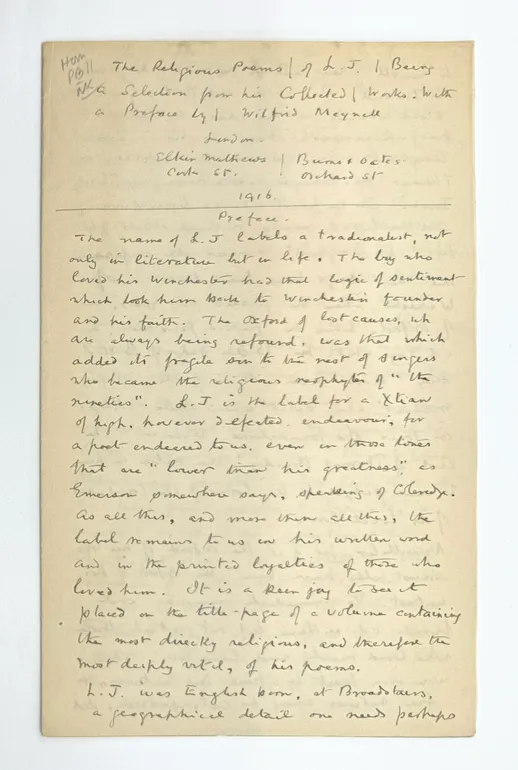 The Religious Poems | of L. J. | Being
a Selection from his Collected | Works. With
a Preface by | Wilfrid Meynell
London.
Elkin Mathews | Burns & Oates.
Cork St. | Orchard St
1916.
Preface.
The name of L. J labels a tradionalist, not
only in literature but in life. The boy who
loved his Winchester had that logic of sentiment
which took him back to Winchester's founder
and his faith. The Oxford of lost causes, wh
are always being refound, was that which
added its fragile son to the nest of singers
who became the religious neophytes of "the
nineties". L. J. is the label for a Xtian
of high, however defeated, endeavour; for
a poet endeared to us, even in those tones
that are "lower than his greatness", as
Emerson somewhere says, speaking of Coleridge.
As all this, and more than all this, the
label remains to us in his written word
and in the printed loyalties of those who
loved him. It is a keen joy to see it
placed on the title-page of a volume containing
the most directly religious, and therefore the
most deeply vital, of his poems.
L. J. was English born, at Broadstairs,
a geographical detail one needs perhaps